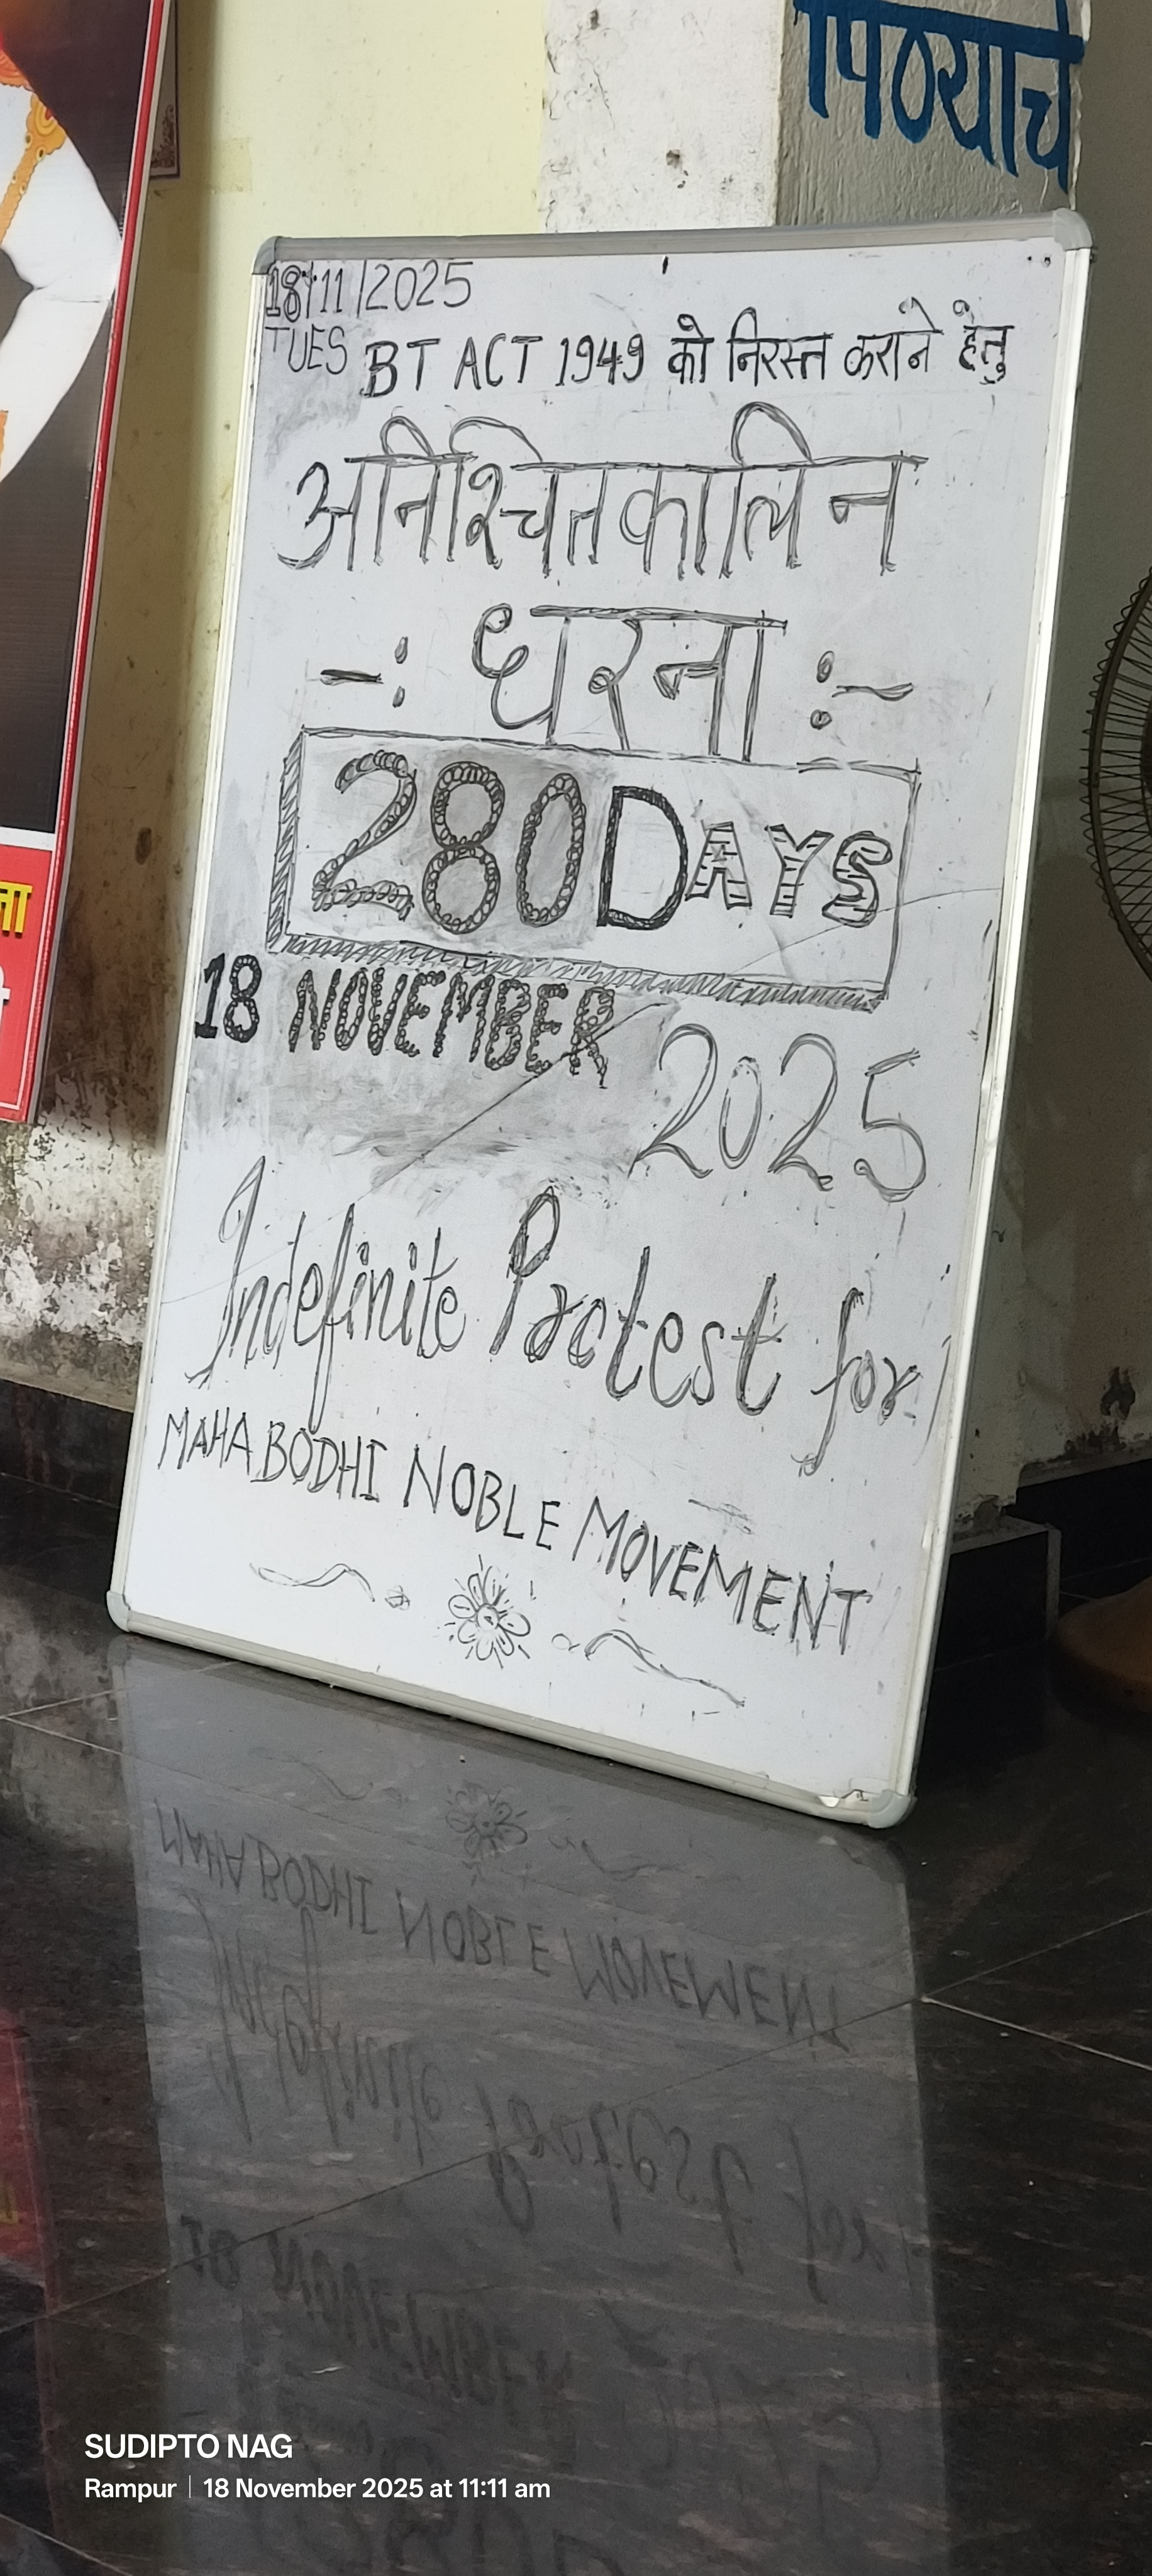 पिण्याचे
18/11/2025
TUES
BT ACT 1949 को निरस्त कराने हेतु
अनिश्चितकालिन
-: धरना :-
280 DAYS
18 NOVEMBER
2025
Indefinite Protest for
MAHABODHI NOBLE MOVEMENT
SUDIPTO NAG
Rampur | 18 November 2025 at 11:11 am